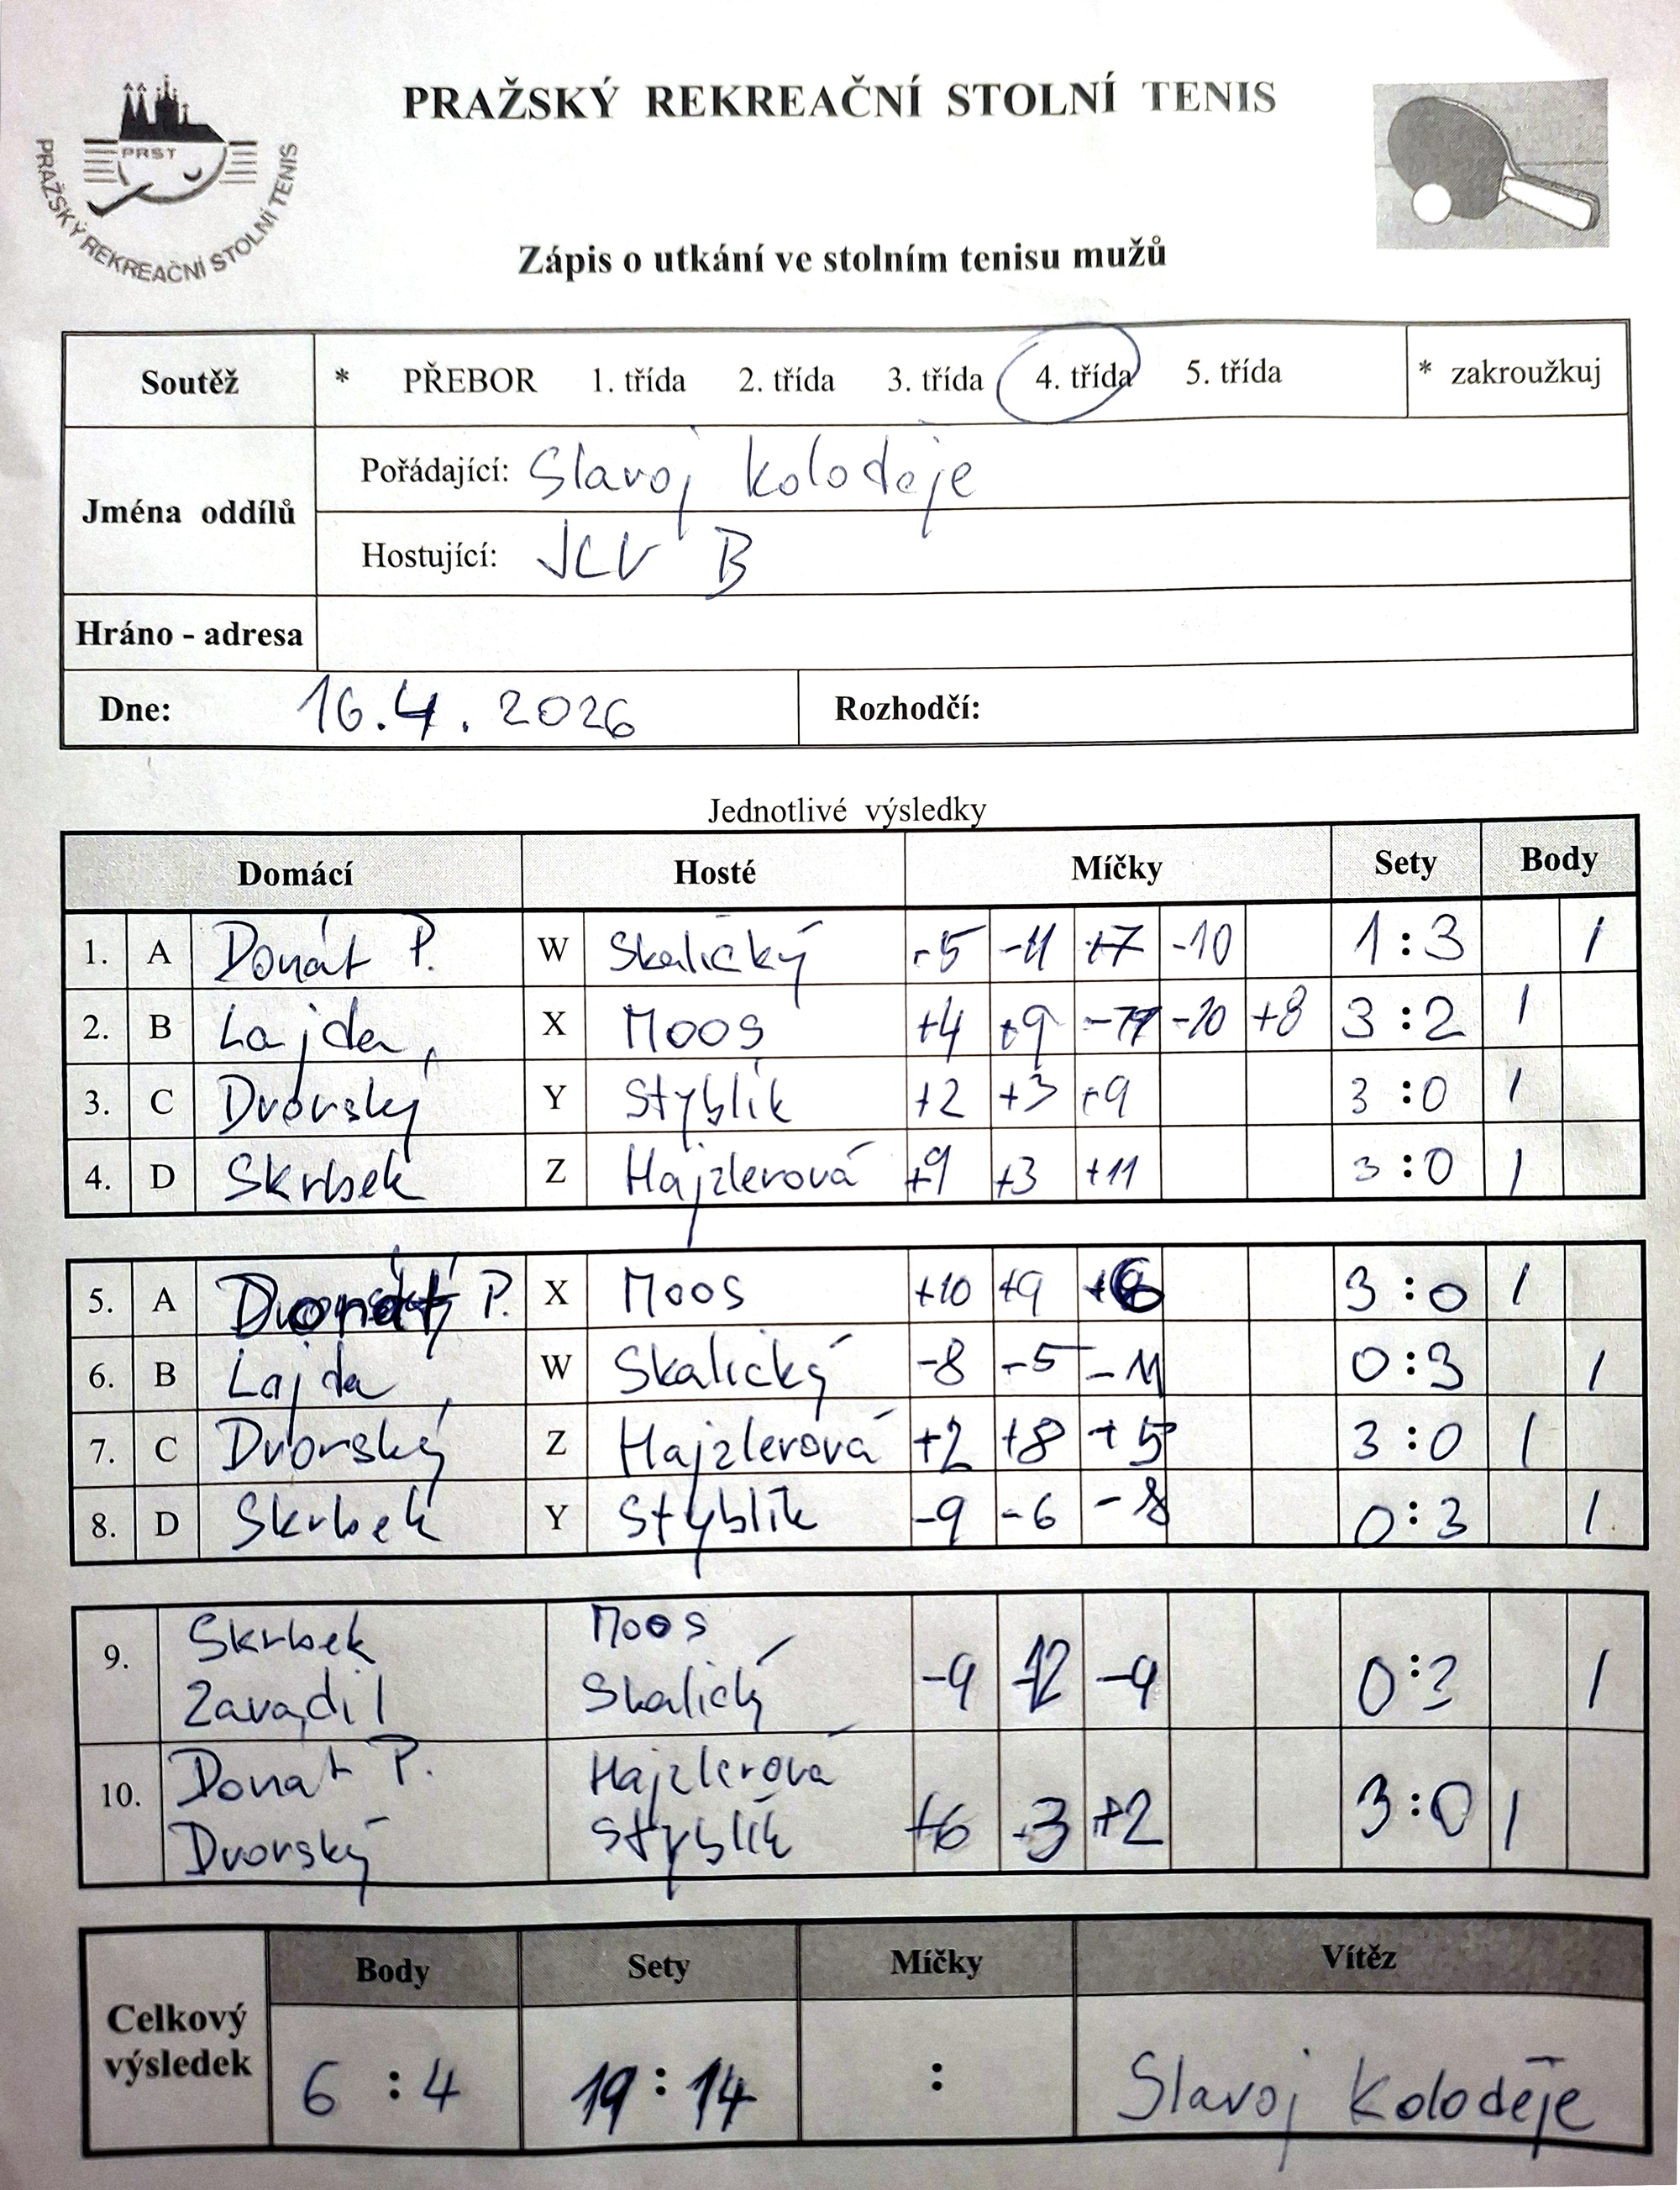 PRAŽSKÝ REKREAČNÍ STOLNÍ TENIS
PRST
PRAŽSKÝ REKREAČNÍ STOLNÍ TENIS
Zápis o utkání ve stolním tenisu mužů
Soutěž * PŘEBOR 1. třída 2. třída 3. třída 4. třída 5. třída * zakroužkuj
Jména oddílů
Pořádající: Slavoj Koloděje
Hostující: JCV B
Hráno - adresa
Dne: 16.4.2026 Rozhodčí:
Jednotlivé výsledky
Domácí Hosté Míčky Sety Body
1. A Donát P. W Skalický -5 -11 +7 -10 1:3 1
2. B Lajda X Moos +4 +9 -10 +8 3:2 1
3. C Dvorský Y Styblík +2 +3 +9 3:0 1
4. D Skrbek Z Hajzlerová +9 +3 +11 3:0 1
5. A Donát P. X Moos +10 +9 +6 3:0 1
6. B Lajda W Skalický -8 -5 -11 0:3 1
7. C Dvorský Z Hajzlerová +2 +8 +5 3:0 1
8. D Skrbek Y Styblík -9 -6 -8 0:3 1
9. Skrbek Moos
Zavadil Skalický -9 -12 -9 0:3 1
10. Donát P. Hajzlerová
Dvorský Styblík +6 +3 +2 3:0 1
Celkový výsledek
Body Sety Míčky Vítěz
6:4 19:14 : Slavoj Koloděje